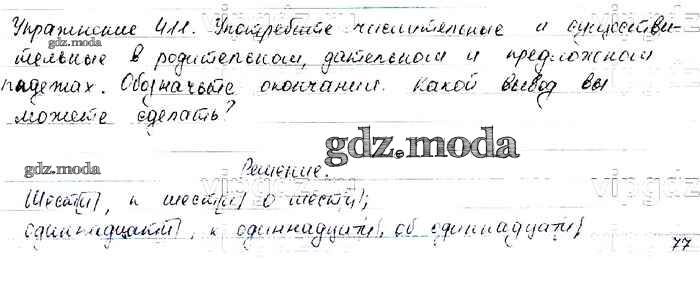 Упражнение 411. Употребите числительные и существи-
тельные в родительном, дательном и предложном
падежах. Обозначьте окончания. Какой вывод вы
можете сделать?
gdz.moda
gdz.moda
Решение.
gdz.moda
vipgdz
Шест[и], к шест[и] о шест[и];
одиннадцат[и], к одиннадцат[и], об одиннадцат[и],
77
gdz.moda
vipgdz